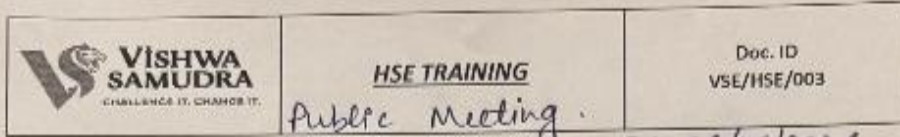 VISHWA
SAMUDRA
CHALLENGE IT. CHANGE IT.
HSE TRAINING
Public Meeting.
Doc. ID
VSE/HSE/003